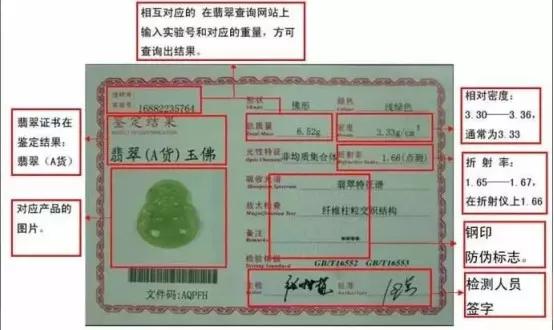 相互对应的 在翡翠查询网站上
输入实验号和对应的重量，方可
查询出结果。
翡翠证书在
鉴定结果：
翡翠（A货）
对应产品的
图片。
实验号
16882235764
鉴定结果
翡翠(A货)玉佛
文件码:AQPFH
形状
佛形
颜色
浅绿色
总质量
6.52g
密度
3.33g/cm³
光性特征
非均质集合体
折射率
1.66(点测)
吸收光谱
翡翠特征谱
放大检查
纤维柱粒交织结构
备注
检验依据
GB/T16552 GB/T16553
主检
批准
相对密度：
3.30——3.36，
通常为3.33
折 射 率：
1.65——1.67，
在折射仪上1.66
钢印
防伪标志。
检测人员
签字